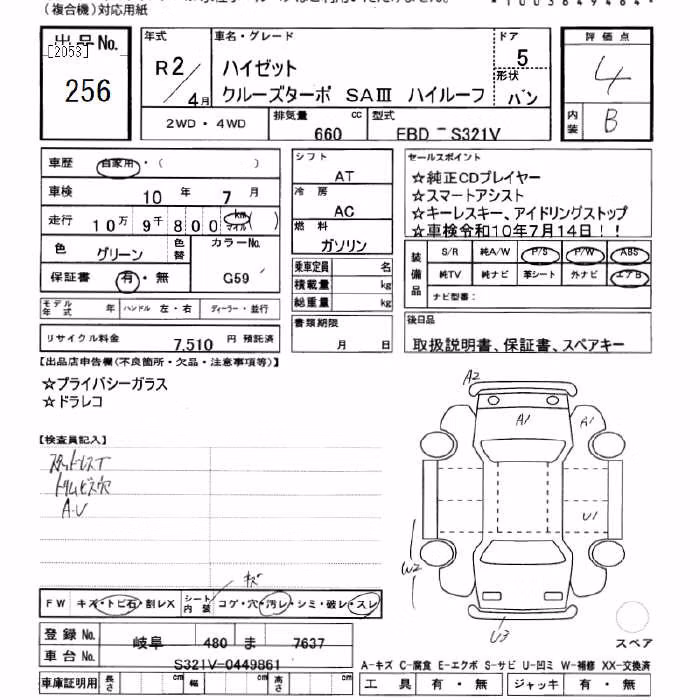 (複合機)対応用紙
出品No.
[2053]
256
年式
R2/4月
車名・グレード
ハイゼット
クルーズターボ SAⅢ ハイルーフ
ドア
5
形状
バン
評価点
4
内装
B
2WD・4WD
排気量
660 cc
型式
EBD-S321V
車歴 自家用・( )
車検 10年 7月
走行 10万9千800 km マイル ( )
色 グリーン 色替
カラーNo.
G59
保証書 有・無
シフト
AT
冷房
AC
燃料
ガソリン
乗車定員 名
積載量 kg
総重量 kg
セールスポイント
☆純正CDプレイヤー
☆スマートアシスト
☆キーレスキー、アイドリングストップ
☆車検令和10年7月14日!!
装備品
S/R 純A/W P/S P/W ABS
純TV 純ナビ 革シート 外ナビ エアB
ナビ型番:
モデル年式 年 ハンドル 左・右 ディーラー・並行
リサイクル料金 7,510 円 預託済
書類期限
月 日
後日品
取扱説明書、保証書、スペアキー
【出品店申告欄(不良箇所・欠品・注意事項等)】
☆プライバシーガラス
☆ドラレコ
【検査員記入】
スタットレスT
トリムビス穴
A-U
A2
A1
A1
U1
W2
U3
スペア
キズ
FW キズ・トビ石・割レX シート内装 コゲ・穴・汚レ・シミ・破レ・スレ
登録No. 岐阜 480 ま 7637
車台No. S321V-0449861
A-キズ C-腐食 E-エクボ S-サビ U-凹ミ W-補修 XX-交換済
車庫証明用 長さ cm 幅 cm 高さ cm
工具 有・無 ジャッキ 有・無